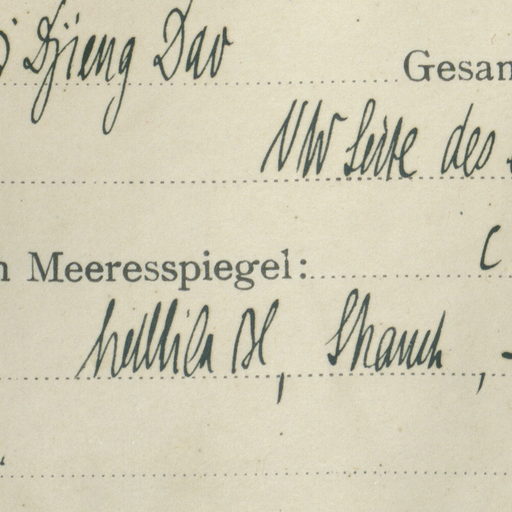 Djieng Dav
Gesam
NW Seite des
n Meeresspiegel:
c
hellila Bl, Strauch,